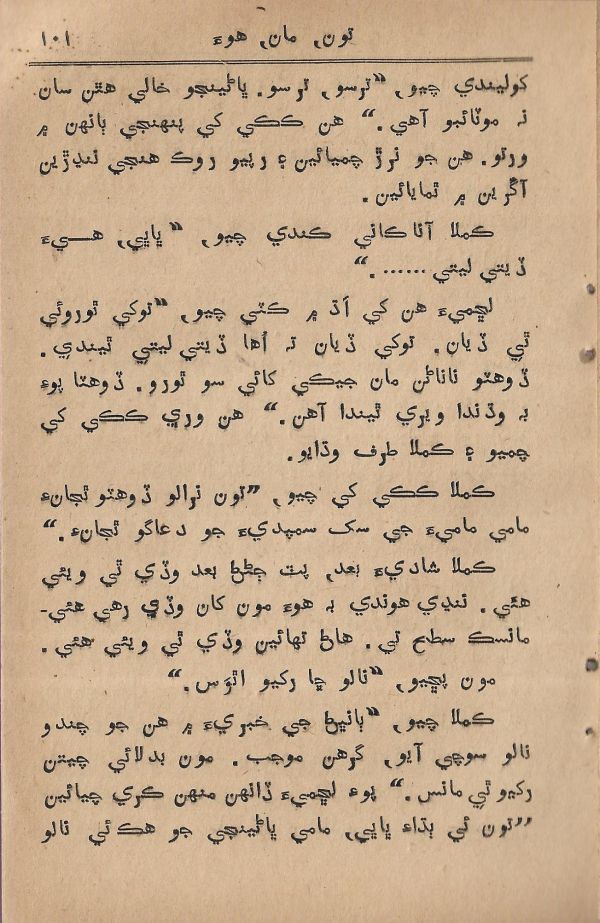 تون، مان، هوءَ ۱۰۱
کوليندي چيو، “ترسو، ترسو. ڀاڻيجو خالي هٿن سان
نہ موٽائبو آهي.“ هن ڪڪي کي پنهنجي ٻانهن ۾
ورتو. هن جو نرڙ چميائين ۽ رپيو روڪ هنجي ننڍڙين
آڱرين ۾ ٿمايائين.
ڪملا آناڪاني ڪندي چيو، “ڀاڀي، هـــيءَ
ڏيتي ليتي ......“
لڇميءَ هن کي اڌ ۾ ڪٽي چيو، “توکي ٿوروئي
ٿي ڏيان. توکي ڏيان تہ اُها ڏيتي ليتي ٿيندي.
ڏوهٽو ناناڻن مان جيڪي کائي سو ٿورو. ڏوهٽا پوءِ
بہ وڏندا ويري ٿيندا آهن.“ هن وري ڪڪي کي
چميو ۽ ڪملا طرف وڌايو.
ڪملا ڪڪي کي چيو، ”تون نرالو ڏوهٽو ٿجانءِ
مامي ماميءَ جي سک سمپديءَ جو دعاگو ٿجانءِ.“
ڪملا شاديءَ بعد، پٽ ڄڻڻ بعد وڏي ٿي ويئي
هئي. ننڍي هوندي بہ هوءَ مون کان وڏي رهي هئي-
مانسڪ سطح تي. هاڻ تهائين وڏي ٿي ويئي هئي.
مون پڇيو، “نالو ڇا رکيو اٿوَس.“
ڪملا چيو، “ٻانڀڻ جي خبريءَ ۾ هن جو چندو
نالو سوچي آيو، گرهن موجب. مون بدلائي چيتن
رکيو ٿي مانس.“ پوءِ لڇميءَ ڏانهن منهن ڪري چيائين
”تون ئي ٻڌاءِ ڀاڀي، مامي ڀاڻيجي جو هڪ ئي نالو